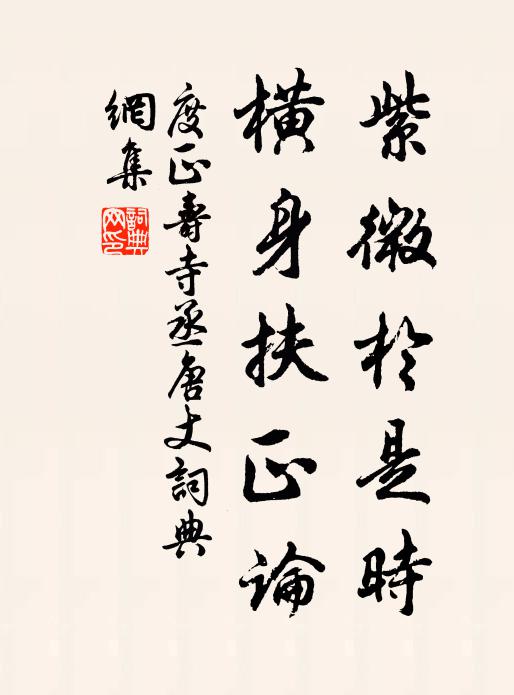 紫微於是時
橫身扶正論
度正壽寺丞唐丈詞典
網集
詞典网印